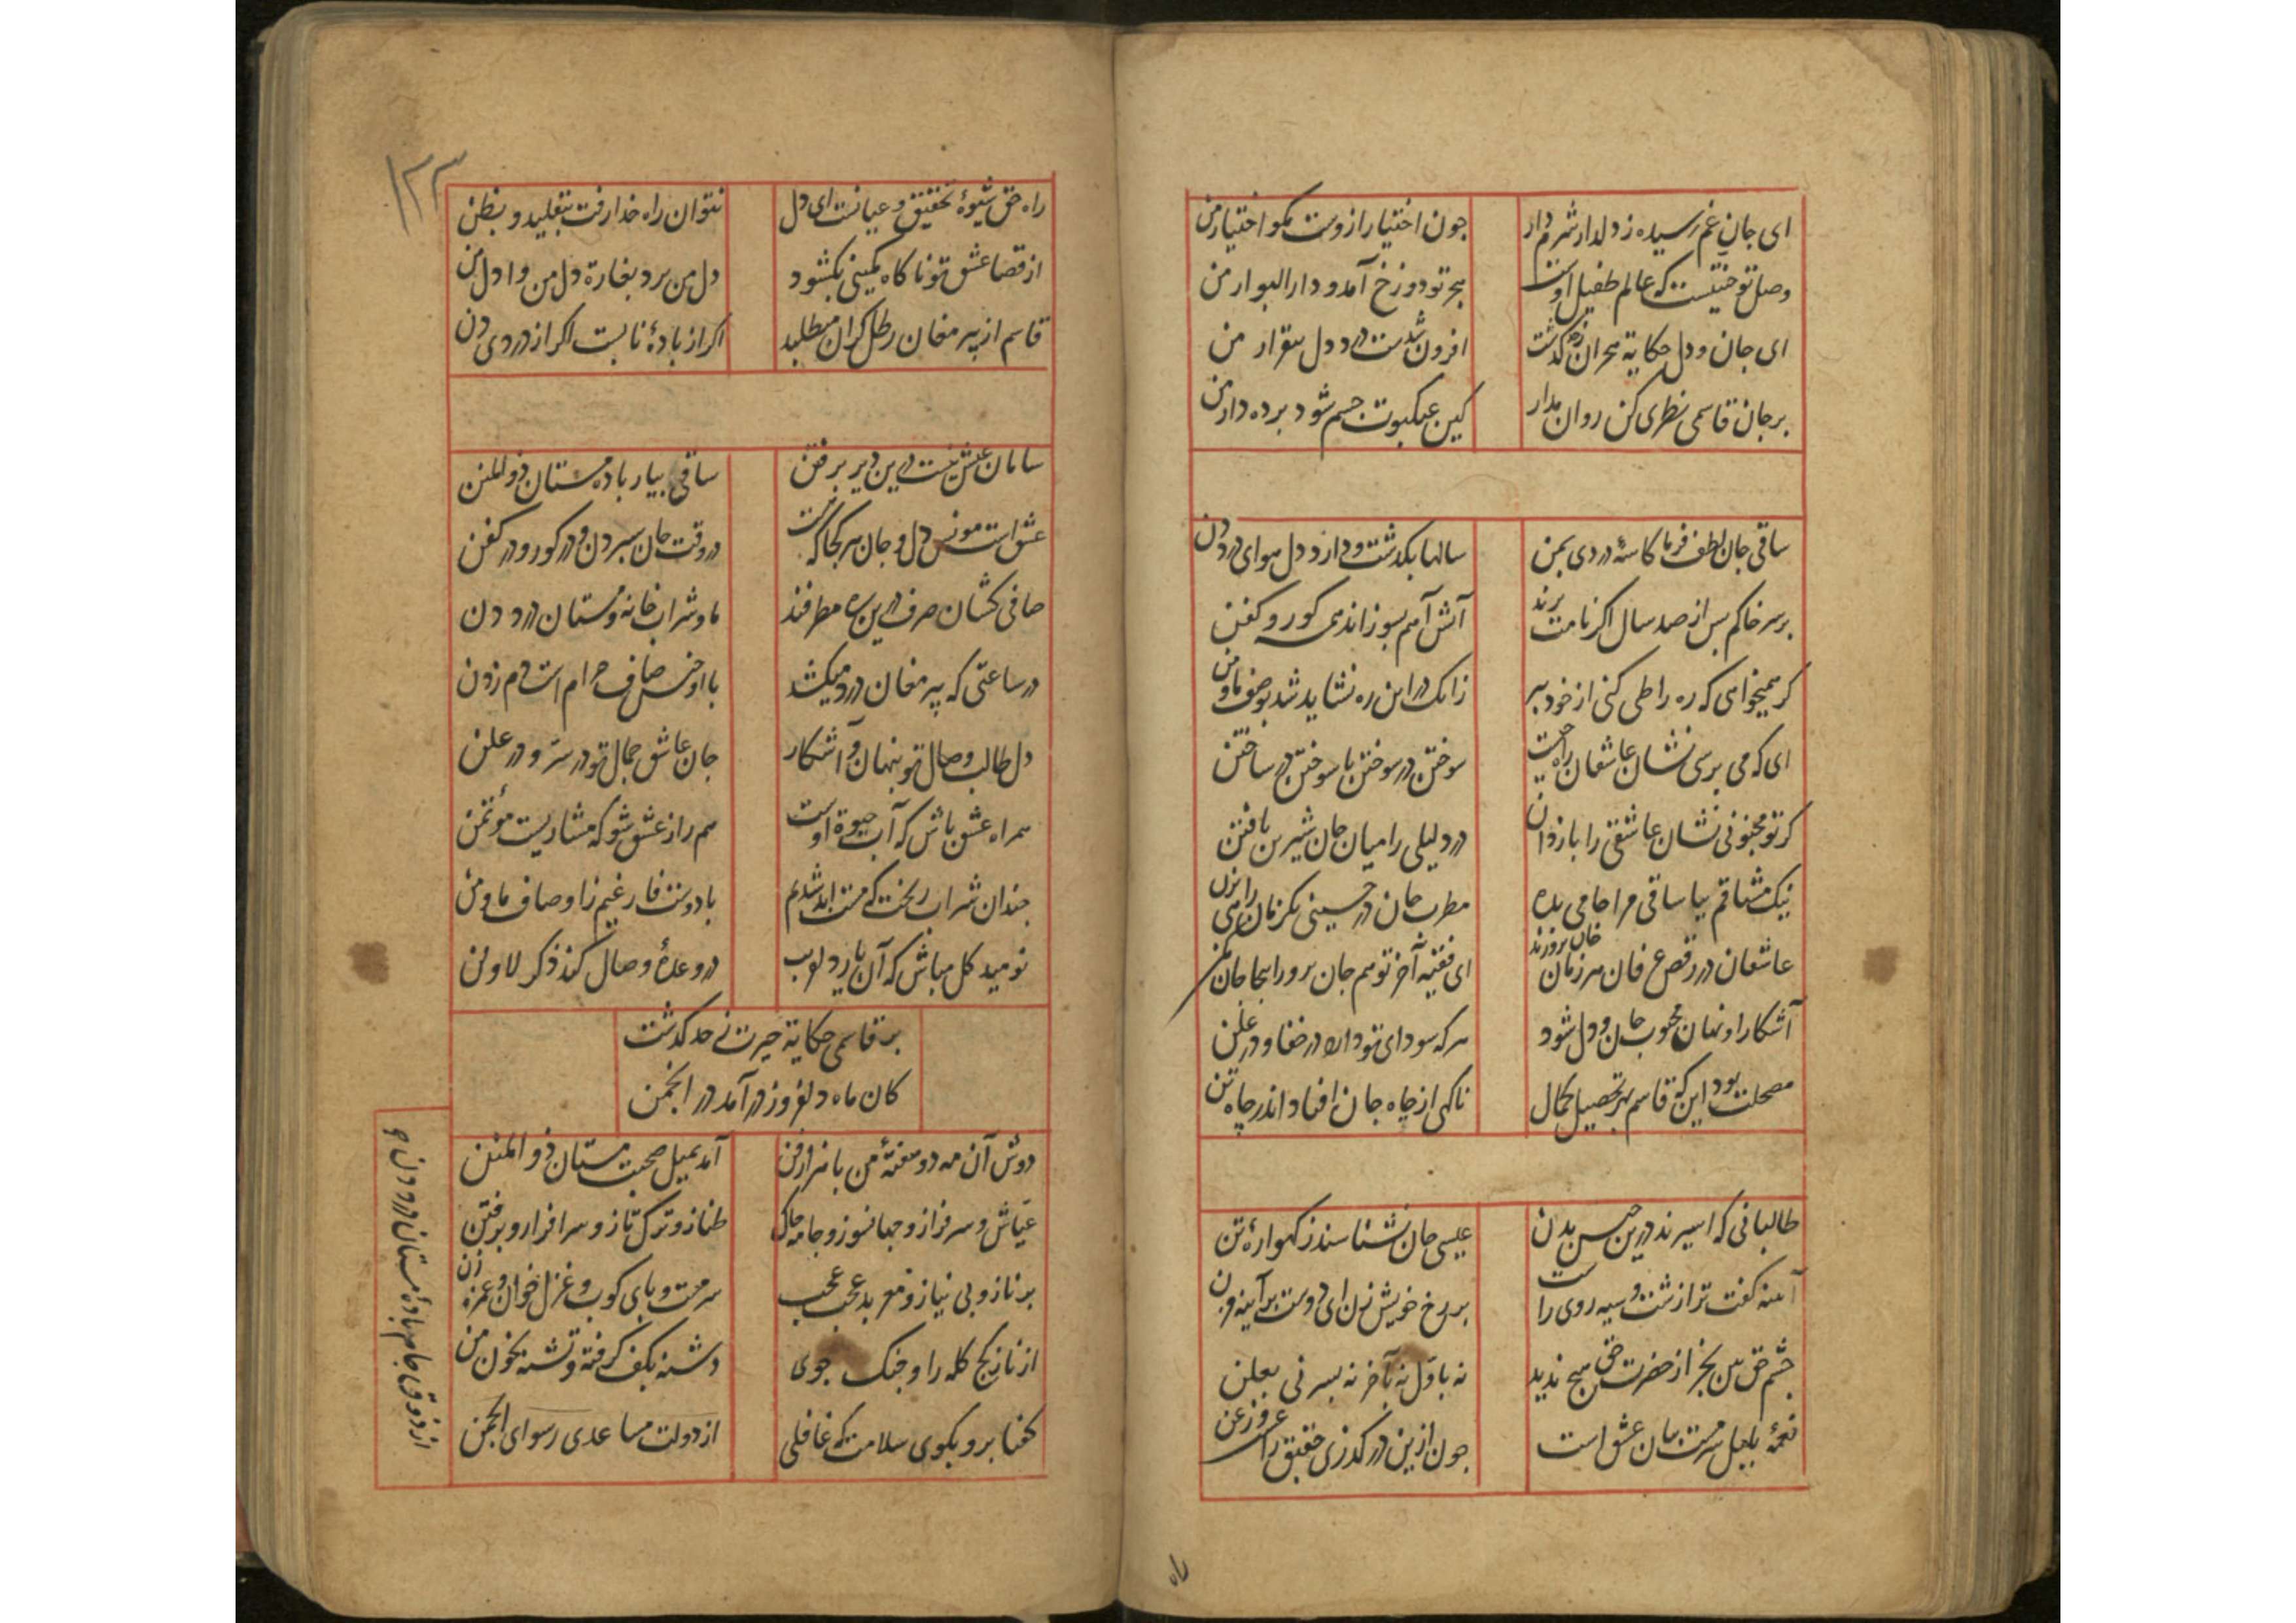 ای جان غم رسیده ز دلدار شرم دار
جون اختیار ازوست مکو اختیار من
وصل تو جنتیست که عالم طفیل اوست
هجر تو دوزخ آمد و دار البوار من
ای جان و دل حکایة هجران ز حد کذشت
افزون شدست درد دل بیقرار من
بر جان قاسمی نظری کن روان مدار
کین عنکبوت جسم شود برده دار من
ساقی جان لطف فرما کاسهٔ دردی بمن
سالها بکذشت و دارد دل هوای درد دن
بر سر خاکم بس از صد سال اکر نامت برند
آتش آهم بسوزاند همی کور و کفن
کر همیخواهی که ره را طی کنی از خود ببر
زانک در این ره نشاید شد بوصف ما و من
ای که می برسی نشان عاشقان راه جیست
سوختن در سوختن با سوختن در ساختن
کر تو مجنونی نشان عاشقی را باز دان
درد لیلی را میان جان شیرین یافتن
نیک مشتاقم بیا ساقی مرا جامی بده
مطرب جان در حسینی یکزمان راهی بزن
عاشقان در رقص عرفان هر زمان جان برورند
ای فقیه آخر تو هم جان برور اینجا جان مکن
آشکارا و نهان محبوب جان و دل شود
هر که سودای تو دارد در خفا و در علن
مصلحت بود این که قاسم بهر تحصیل کمال
ناکهی از جاه جان افتاد اندر چاه تن
طالبانی که اسیرند درین حبس بدن
عیسی جان نشناسند ز کهوارهٔ تن
آینه کفت ترا زشت و سیه روی راست
بر رخ خویش زن ای دوست بر آیینه مزن
جشم حق بین بجز از حضرت حق هیج ندید
نه باول نه بآخر نه بسر نی بعلن
نغمهٔ بلبل سرمست بیان عشق است
جون ازین در کذری نعیق زاغ و زغن
راه
۱۲۳
راه حق شیوهٔ تحقیق و عیانست ای دل
نتوان راه خدا رفت بتقلید و بظن
از قضا عشق تو ناکاه کمینی بکشود
دل من برد بغارة دل من وا دل من
قاسم از پیر مغان رطل کران میطلبد
اکر از بادهٔ نابست اکر از دردی دن
سامان عیش نیست درین دیر بر فتن
ساقی بیار باده مستان ذو المنن
عشق است مونس دل و جان هر کجا که هست
در وقت جان سبردن و در کور و در کفن
صافی کشان صرف درین ره مطرفند
ما و شراب خانه و مستان درد دن
در ساعتی که پیر مغان درد میکشد
با او ز جنس صاف حرام است دم زدن
دل طالب وصال تو بنهان و آشکار
جان عاشق جمال تو در سرّ و در علن
همراه عشق باش که آب حیوة اوست
هم راز عشق شو که مشاریست مؤتمن
جندان شراب ریخت که مست ابد شدیم
با دوست فارغیم ز اوصاف ما و من
نومید کل مباش که آن یار دلفریب
در وعدهٔ وصال کند ذکر لا و لن
بر قاسمی حکایة حیرت ز حد کذشت
کان ماه دلفروز در آمد در انجمن
دوش آن مه دو هفتهٔ من با هزار فن
آمد بمیل صحبت مستان ذو المنن
عیّاش و سرفراز و جهانسوز و جامه جاک
طناز و ترک تاز و سرافراز و بر فتن
بر ناز و بی نیاز و معربد عجب عجب
سرمست و بای کوب و غزل خوان و غمزه زن
از ناز کج کله را و جنک جوی
دشنه بکف کرفته و تشنه بخون من
کفتا برو بکوی سلامت که غافلی
از دولت مساعدی رسوای انجمن
از ذوق جام بادهٔ مستان درد دن